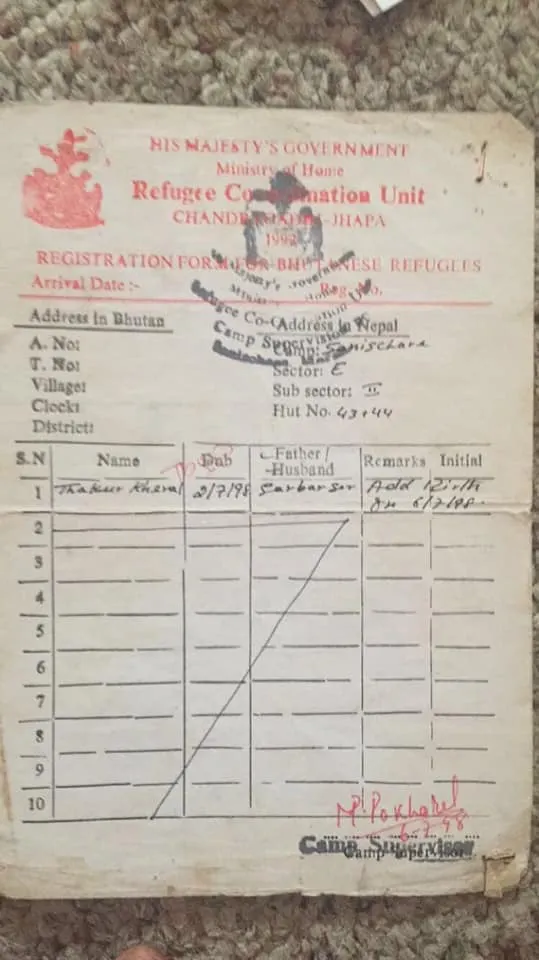 HIS MAJESTY'S GOVERNMENT
Ministry of Home
Refugee Co-ordination Unit
CHANDRAGADHI-JHAPA
1992
REGISTRATION FORM FOR BHUTANESE REFUGEES
Arrival Date :- Reg. No.
His Majesty's Government
Ministry Home
Refugee Co-ordination Unit
Camp Supervisor
Address in Bhutan Address in Nepal
A. No: Camp: Sanischare
T. No: Sector: E
Village: Sub sector: II
Clock: Hut No. 43+44
District:
S.N Name Dob Father / Husband Remarks Initial
1 Thakur 2/7/98 Add Birth
on 6/7/98.
2
3
4
5
6
7
8
9
10
M.Pokharel
6-7-98
Camp Supervisor
Camp Supervisor